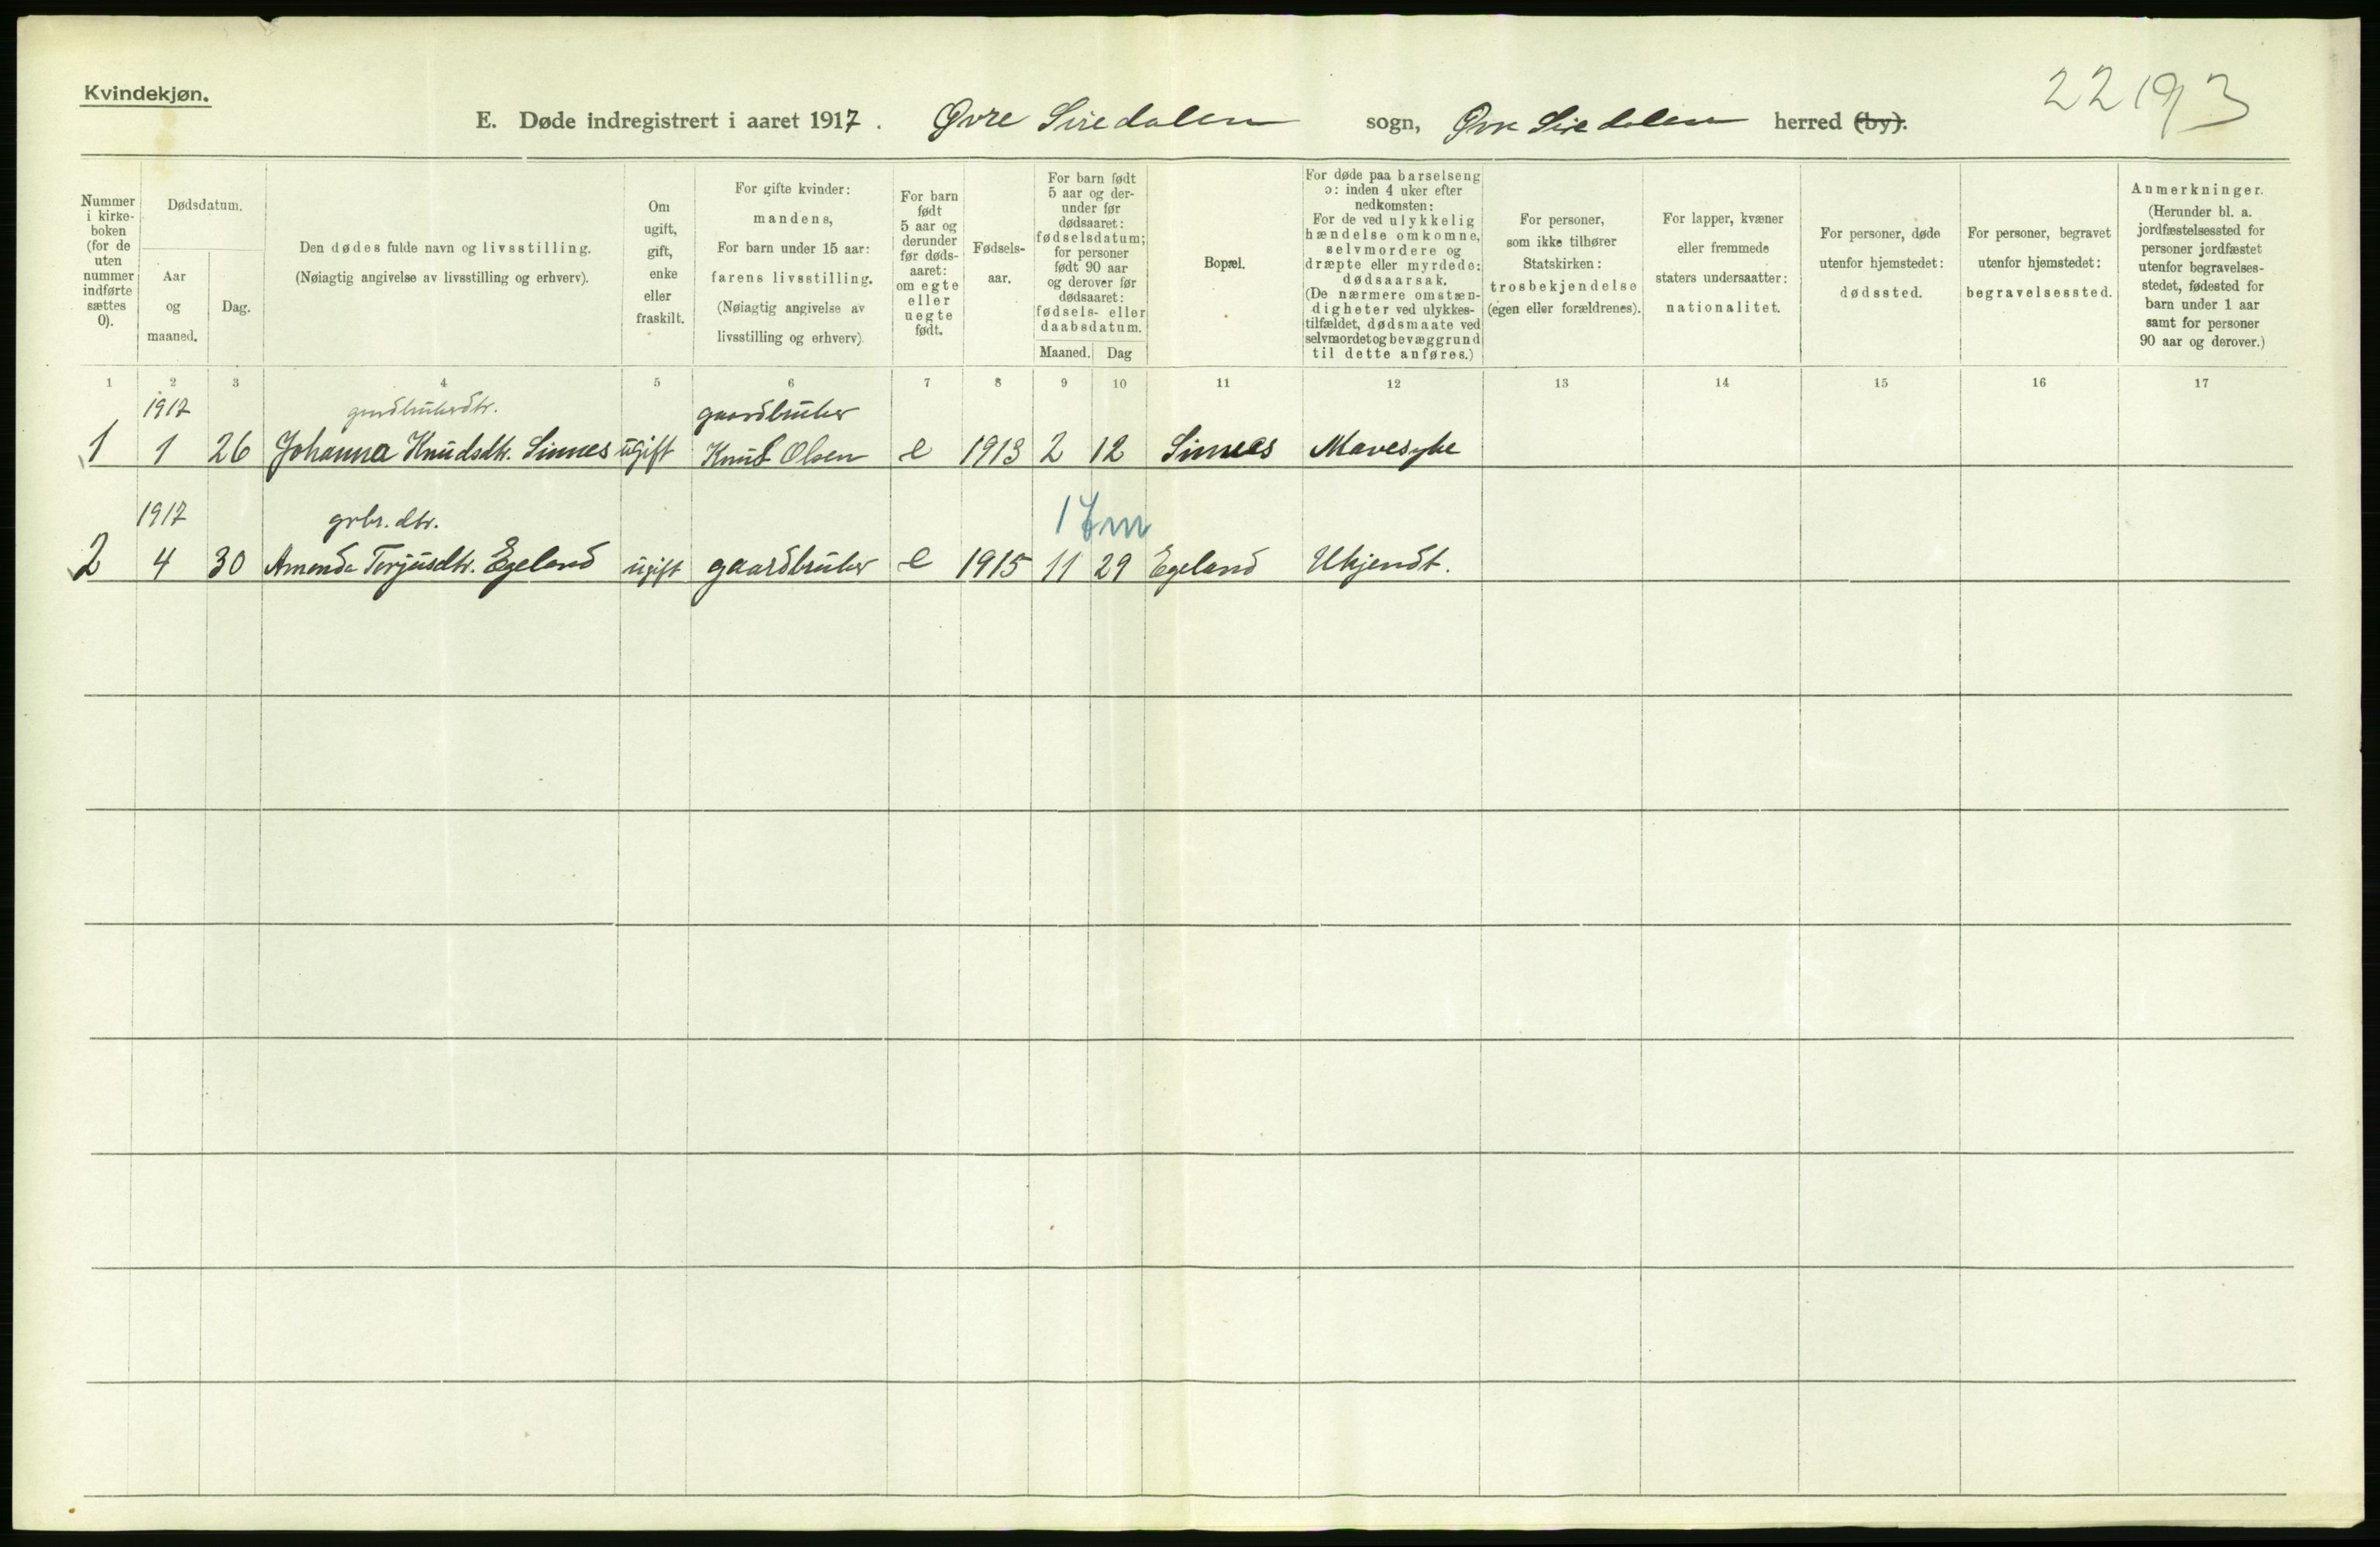 Kvindekjøn.
22193
E. Døde indregistrert i aaret 1917. Øvre Siredalen sogn, Øvre Siredalen herred (by).
Nummer
i kirke-
boken
(for de
uten
nummer
indførte
sættes
0).
Dødsdatum.
Aar
og
maaned.
Dag.
Den dødes fulde navn og livsstilling.
(Nøiagtig angivelse av livsstilling og erhverv).
Om
ugift,
gift,
enke
eller
fraskilt.
For gifte kvinder:
mandens,
For barn under 15 aar:
farens livsstilling.
(Nøiagtig angivelse av
livsstilling og erhverv)
For barn
født
5 aar og
derunder
før døds-
aaret:
om egte
eller
uegte
født.
Fødsels-
aar.
For barn født
5 aar og der-
under før
dødsaaret:
fødselsdatum;
for personer
født 90 aar
og derover før
dødsaaret:
fødsels- eller
daabsdatum.
Maaned. Dag
Bopæl.
For døde paa barselseng
ɔ: inden 4 uker efter
nedkomsten:
For de ved ulykkelig
hændelse omkomne,
selvmordere og
dræpte eller myrdede:
dødsaarsak.
(De nærmere omstæn-
digheter ved ulykkes-
tilfældet, dødsmaate ved
selvmordet og bevæggrund
til dette anføres.)
For personer,
som ikke tilhører
Statskirken:
trosbekjendelse
(egen eller forældrenes).
For lapper, kvæner
eller fremmede
staters undersaatter:
nationalitet.
For personer, døde
utenfor hjemstedet:
dødssted.
For personer, begravet
utenfor hjemstedet:
begravelsessted.
Anmerkninger.
(Herunder bl. a.
jordfæstelsessted for
personer jordfæstet
utenfor begravelses-
stedet, fødested for
barn under 1 aar
samt for personer
90 aar og derover.)
1 2 3 4 5 6 7 8 9 10 11 12 13 14 15 16 17
1917 gaardbrukerdtr. gaardbruker
1 1 26 Johanna Knudsdtr. Sinnes ugift Knut Olsen e 1913 2 12 Sinnes Mavesyke
1917 grbr. dtr. 17m
2 4 30 Amanda Terjusdtr. Egeland ugift gaardbruker e 1915 11 29 Egeland Ukjendt.